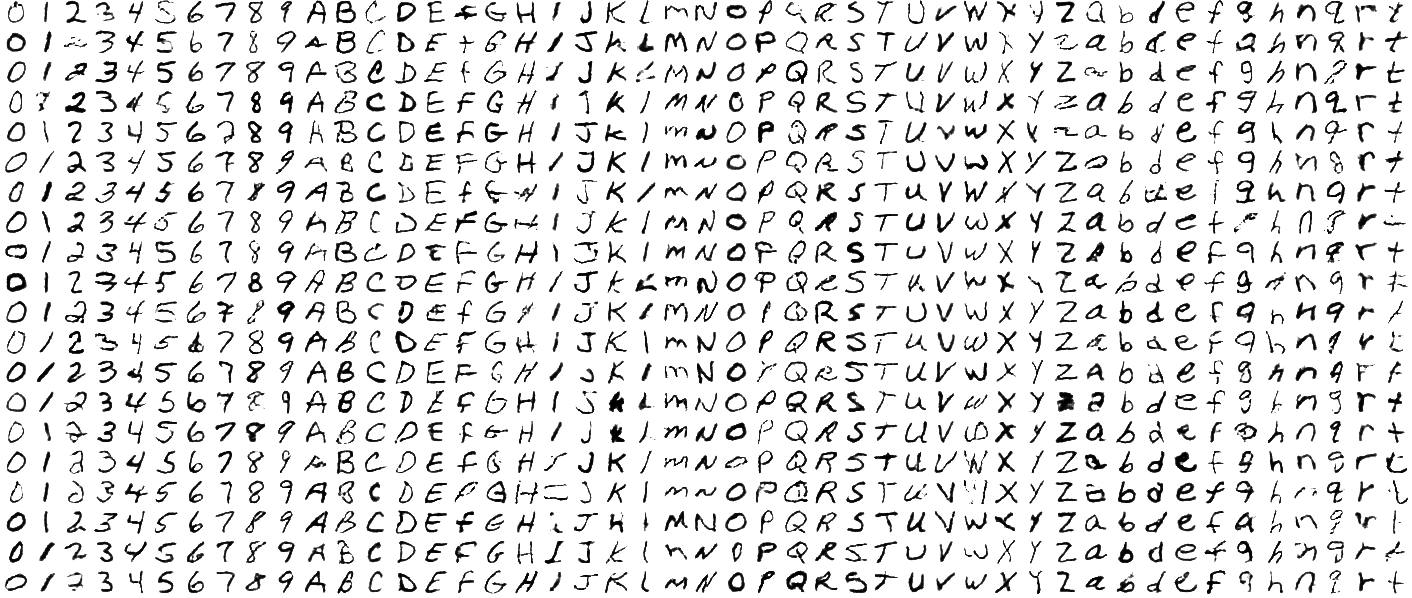 0 1 2 3 4 5 6 7 8 9 A B C D E F G H I J K L M N O P Q R S T U V W X Y Z a b d e f g h n q r t
0 1 2 3 4 5 6 7 8 9 A B C D E F G H I J K L M N O P Q R S T U V W X Y Z a b d e f g h n q r t
0 1 2 3 4 5 6 7 8 9 A B C D E F G H I J K L M N O P Q R S T U V W X Y Z a b d e f g h n q r t
0 1 2 3 4 5 6 7 8 9 A B C D E F G H I J K L M N O P Q R S T U V W X Y Z a b d e f g h n q r t
0 1 2 3 4 5 6 7 8 9 A B C D E F G H I J K L M N O P Q R S T U V W X Y Z a b d e f g h n q r t
0 1 2 3 4 5 6 7 8 9 A B C D E F G H I J K L M N O P Q R S T U V W X Y Z a b d e f g h n q r t
0 1 2 3 4 5 6 7 8 9 A B C D E F G H I J K L M N O P Q R S T U V W X Y Z a b d e f g h n q r t
0 1 2 3 4 5 6 7 8 9 A B C D E F G H I J K L M N O P Q R S T U V W X Y Z a b d e f g h n q r t
0 1 2 3 4 5 6 7 8 9 A B C D E F G H I J K L M N O P Q R S T U V W X Y Z a b d e f g h n q r t
0 1 2 3 4 5 6 7 8 9 A B C D E F G H I J K L M N O P Q R S T U V W X Y Z a b d e f g h n q r t
0 1 2 3 4 5 6 7 8 9 A B C D E F G H I J K L M N O P Q R S T U V W X Y Z a b d e f g h n q r t
0 1 2 3 4 5 6 7 8 9 A B C D E F G H I J K L M N O P Q R S T U V W X Y Z a b d e f g h n q r t
0 1 2 3 4 5 6 7 8 9 A B C D E F G H I J K L M N O P Q R S T U V W X Y Z a b d e f g h n q r t
0 1 2 3 4 5 6 7 8 9 A B C D E F G H I J K L M N O P Q R S T U V W X Y Z a b d e f g h n q r t
0 1 2 3 4 5 6 7 8 9 A B C D E F G H I J K L M N O P Q R S T U V W X Y Z a b d e f g h n q r t
0 1 2 3 4 5 6 7 8 9 A B C D E F G H I J K L M N O P Q R S T U V W X Y Z a b d e f g h n q r t
0 1 2 3 4 5 6 7 8 9 A B C D E F G H I J K L M N O P Q R S T U V W X Y Z a b d e f g h n q r t
0 1 2 3 4 5 6 7 8 9 A B C D E F G H I J K L M N O P Q R S T U V W X Y Z a b d e f g h n q r t
0 1 2 3 4 5 6 7 8 9 A B C D E F G H I J K L M N O P Q R S T U V W X Y Z a b d e f g h n q r t
0 1 2 3 4 5 6 7 8 9 A B C D E F G H I J K L M N O P Q R S T U V W X Y Z a b d e f g h n q r t